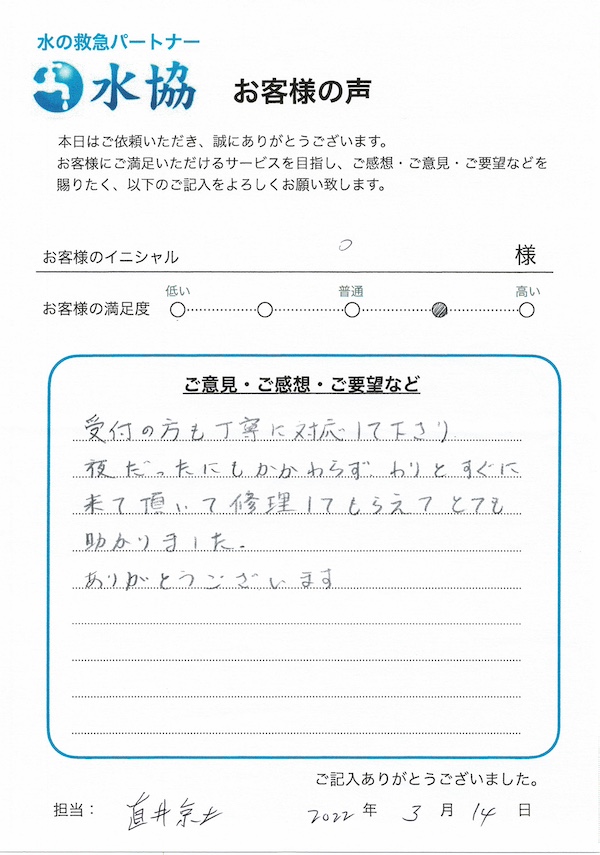 水の救急パートナー
水協 お客様の声
本日はご依頼いただき、誠にありがとうございます。
お客様にご満足いただけるサービスを目指し、ご感想・ご意見・ご要望などを
賜りたく、以下のご記入をよろしくお願い致します。
お客様のイニシャル O 様
低い 普通 高い
お客様の満足度
ご意見・ご感想・ご要望など
受付の方も丁寧に対応して下さり
夜だったにもかかわらず、わりとすぐに
来て頂いて修理してもらえてとても
助かりました。
ありがとうございます
ご記入ありがとうございました。
担当： 直井 2022 年 3 月 14 日